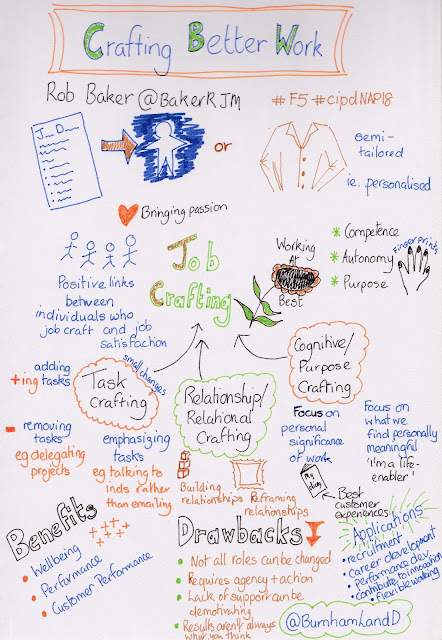 Crafting Better Work
Rob Baker @BakerRJM
#F5 #cipdNAP18
J__D__
or
semi-
tailored
ie.. personalised
Bringing passion
Positive links
between
individuals who
job craft and job
satisfaction
Job
Crafting
Working
At
Best
* Competence
* Autonomy
* Purpose
Fingerprints
small changes
Task
Crafting
Relationship/
Relational
Crafting
Cognitive/
Purpose
Crafting
adding
+ing tasks
- removing
tasks
eg delegating
projects
emphasizing
tasks
eg talking to
inds rather
than emailing
Building
relationships
Reframing
relationships
Focus on
personal
significance
of work
Focus on
what we
find personally
meaningful
"I'm a life-
enabler"
My diary
Best
customer
experiences
Benefits
• Wellbeing
• Performance
• Customer Performance
Drawbacks
• Not all roles can be changed
• Requires agency + action
• Lack of support can be
demotivating
• Results aren't always
what you think
Applications
• recruitment
• career development
• performance dev.
• contribute to innovation
• flexible working
@BurnhamLandD